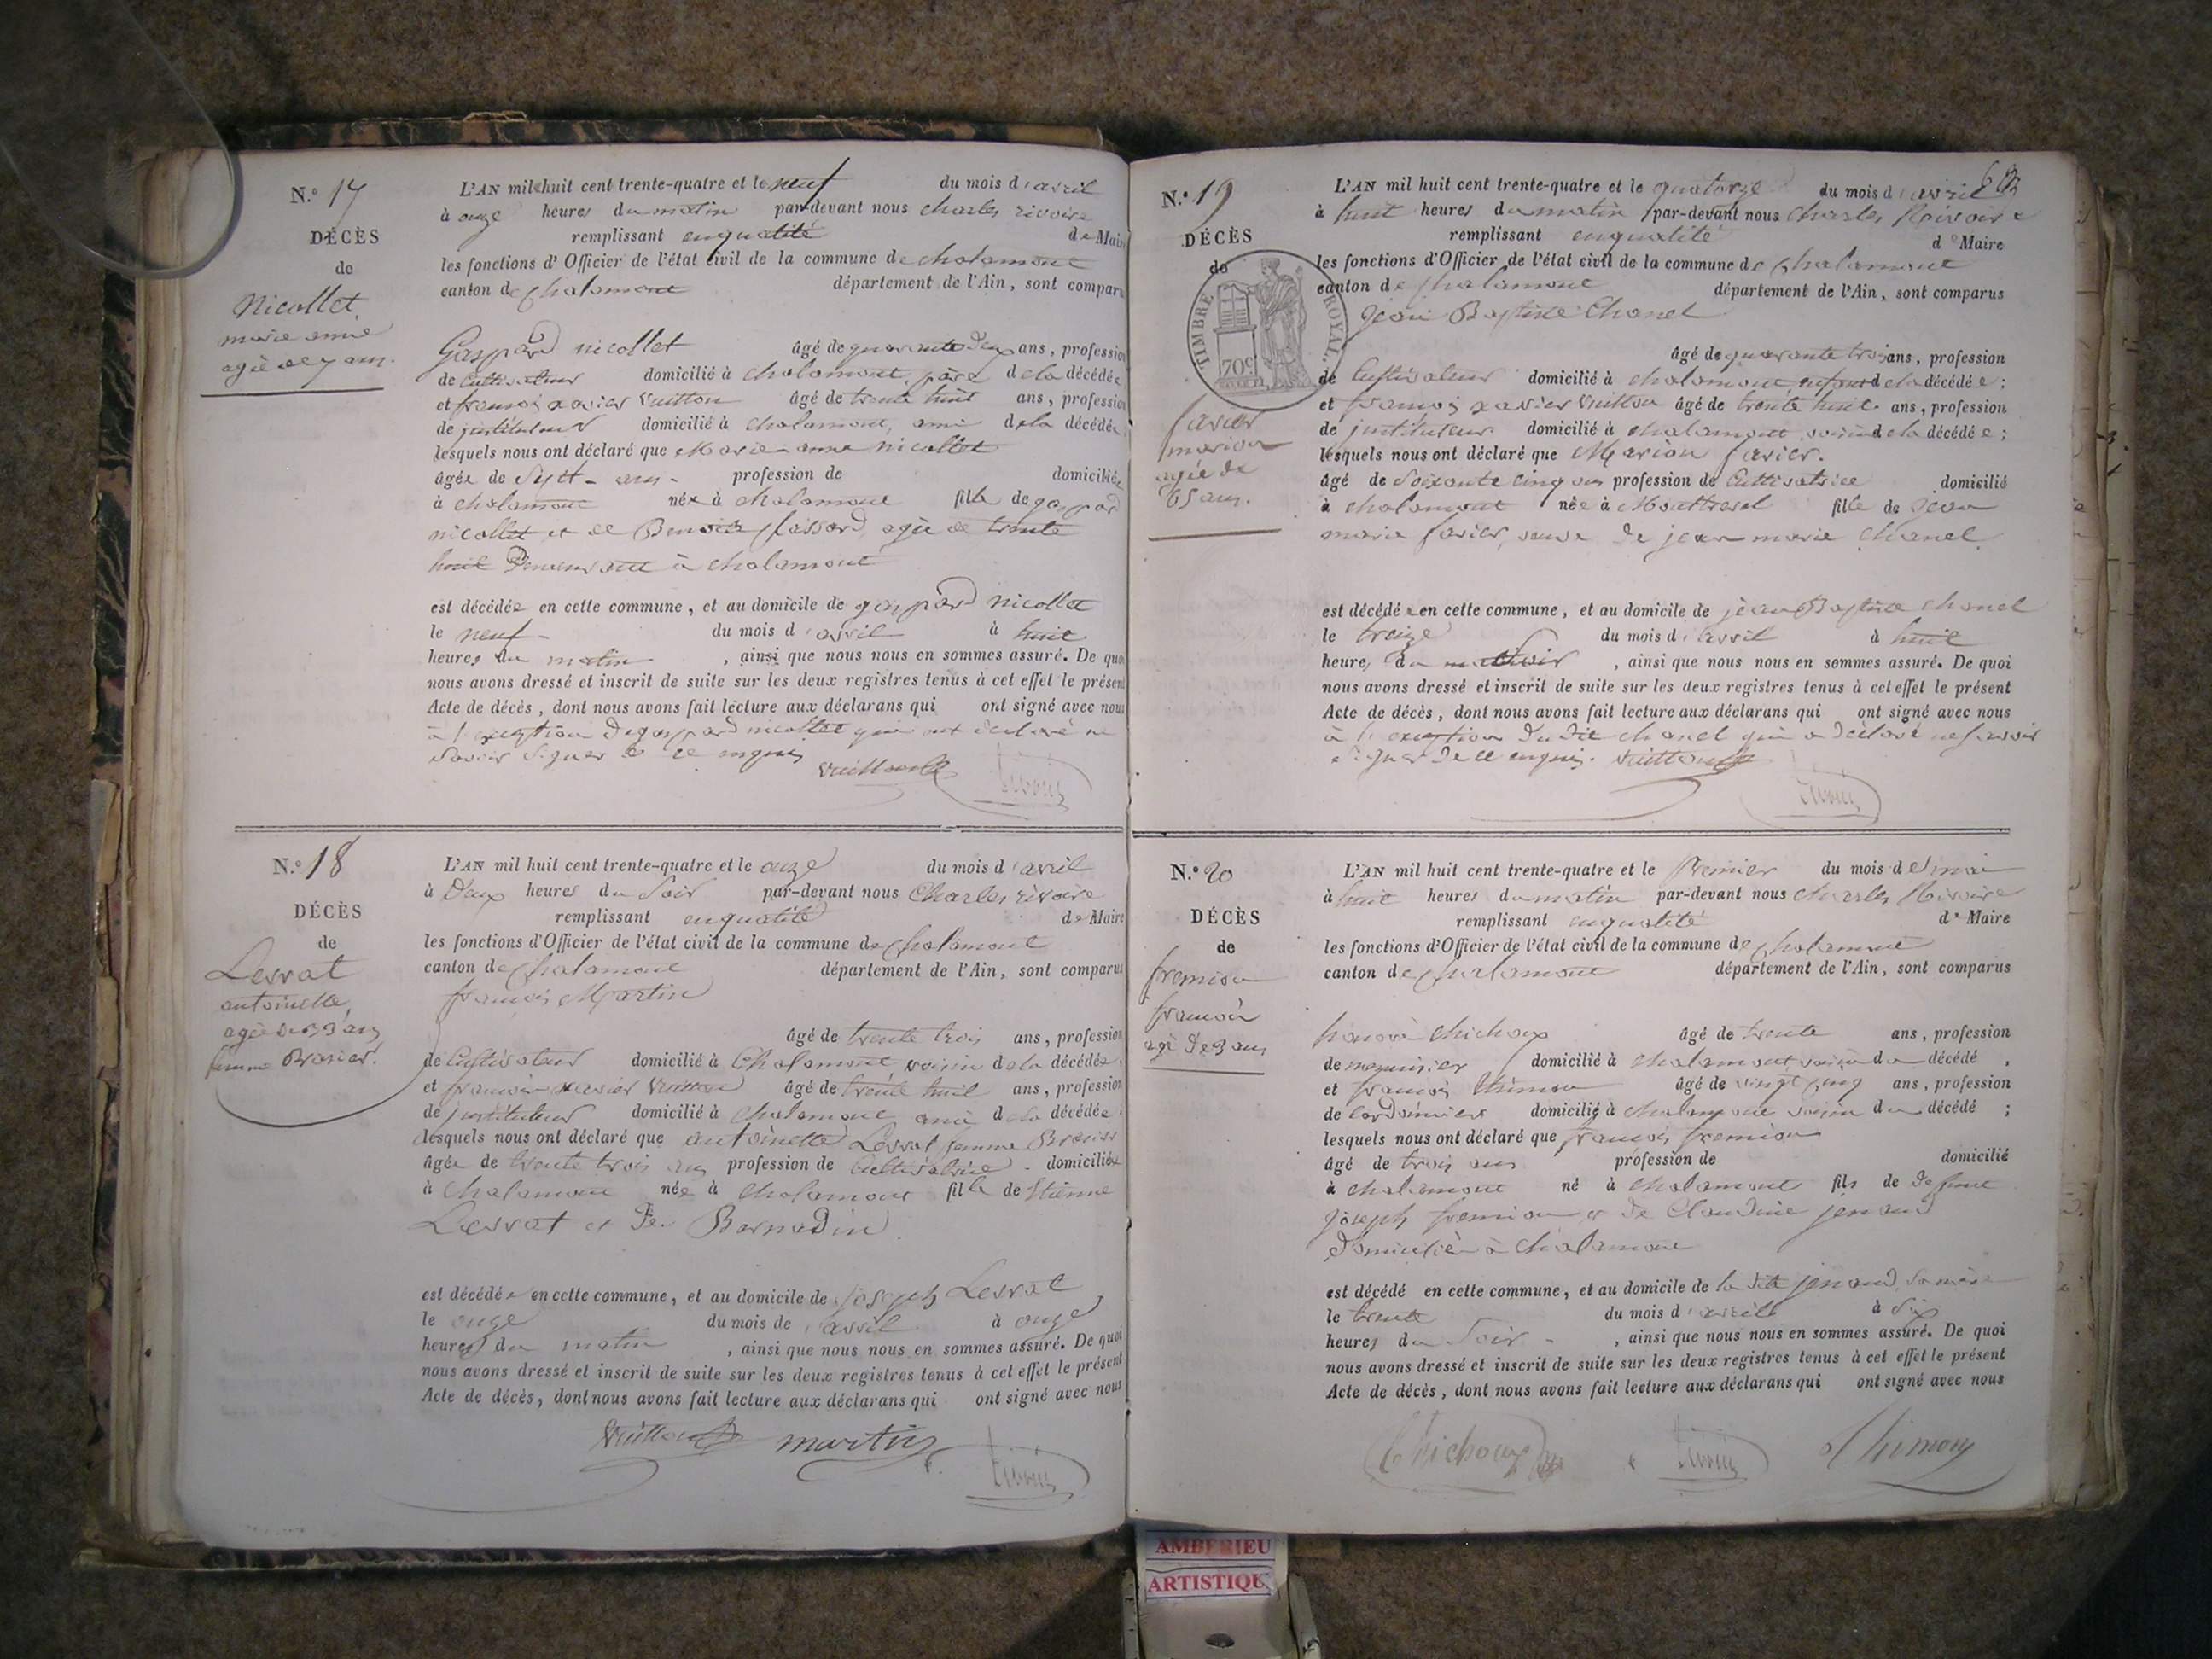 N.° 17
DÉCÈS
de
Nicollet
marie anne
agée de 7 ans.
L'AN mil huit cent trente-quatre et le neuf du mois d'avril
à onze heures du matin par-devant nous charles rivoire
remplissant en qualité de Maire
les fonctions d'Officier de l'état civil de la commune de chalamont
canton de chalamont département de l'Ain, sont comparus
Gaspard nicollet âgé de quarante deux ans, profession
de Cultivateur domicilié à chalamont, père de la décédée
et françois xavier Vuitton âgé de trente huit ans, profession
de jnstituteur domicilié à chalamont, ami de la décédée
lesquels nous ont déclaré que Marie-anne nicollet
âgée de Sept - ans - profession de domiciliée
à chalamont née à chalamont fille de gaspard
nicollet et de Benoite flassard, agée de trente
huit Demeurant à chalamont
est décédée en cette commune, et au domicile de gaspard nicollet
le neuf - du mois d'avril à huit
heures du matin , ainsi que nous nous en sommes assuré. De quoi
nous avons dressé et inscrit de suite sur les deux registres tenus à cet effet le présent
Acte de décès, dont nous avons fait lecture aux déclarans qui ont signé avec nous
à l'exception de gaspard nicollet qui ont déclaré ne
Savoir Signer de ce enquis
Vuitton
N.° 18
DÉCÈS
de
Lesrat
antoinette,
agée de 33 ans
femme Brasier.
L'AN mil huit cent trente-quatre et le onze du mois d'avril
à Deux heures du Soir par-devant nous Charles rivoire
remplissant en qualité de Maire
les fonctions d'Officier de l'état civil de la commune de chalamont
canton de chalamont département de l'Ain, sont comparus
françois Martin
âgé de trente trois ans, profession
de Cultivateur domicilié à Chalamont, voisin de la décédée
et françois xavier Vuitton âgé de trente huit ans, profession
de jnstituteur domicilié à chalamont ami de la décédée
lesquels nous ont déclaré que antoinette Lesrat femme
âgée de trente trois ans profession de Cultivatrice - domiciliée
à Chalamont née à chalamont fille de Etienne
Lesrat et de Bernadin
est décédée en cette commune, et au domicile de joseph Lesrat
le onze du mois de avril à onze
heures du matin , ainsi que nous nous en sommes assuré. De quoi
nous avons dressé et inscrit de suite sur les deux registres tenus à cet effet le présent
Acte de décès, dont nous avons fait lecture aux déclarans qui ont signé avec nous
Vuitton martin
N.° 19
DÉCÈS
de
TIMBRE ROYAL.
70c
favier
marion
agée de
65 ans.
L'AN mil huit cent trente-quatre et le quatorze du mois d'avril
à huit heures du matin par-devant nous Charles Rivoire
remplissant en qualité de Maire
les fonctions d'Officier de l'état civil de la commune de Chalamont
canton de chalamont département de l'Ain, sont comparus
Jean Baptiste Chanel
âgé de quarante trois ans, profession
de Cultivateur domicilié à chalamont de la décédée ;
et françois xavier Vuitton âgé de trente huit ans, profession
de jnstituteur domicilié à chalamont, voisin de la décédée ;
lesquels nous ont déclaré que Marion favier.
âgé de Soixante cinq ans profession de Cultivatrice domicilié
à chalamont née à Montrevel fille de Jean
marie favier, veuve de jean marie Chanel
est décédée en cette commune, et au domicile de jean Baptiste chanel
le treize du mois d'avril à huit
heures du Soir , ainsi que nous nous en sommes assuré. De quoi
nous avons dressé et inscrit de suite sur les deux registres tenus à cet effet le présent
Acte de décès, dont nous avons fait lecture aux déclarans qui ont signé avec nous
à l'exception dudit chanel qui a déclaré ne savoir
signer de ce enquis. Vuitton
N.° 20
DÉCÈS
de
fremion
françois
agé de 3 ans
L'AN mil huit cent trente-quatre et le Premier du mois de mai
à huit heures du matin par-devant nous charles Rivoire
remplissant en qualité de Maire
les fonctions d'Officier de l'état civil de la commune de chalamont
canton de chalamont département de l'Ain, sont comparus
honoré Chichoux âgé de trente ans, profession
de menuisier domicilié à chalamont, voisin du décédé ,
et françois thimon âgé de vingt cinq ans, profession
de Cordonnier domicilié à chalamont voisin du décédé ;
lesquels nous ont déclaré que françois fremion
âgé de trois ans profession de domicilié
à chalamont né à chalamont fils de Defunt
joseph fremion et de Claudine jenaud
Domiciliée à chalamont
est décédé en cette commune, et au domicile de la dite jenaud, sa mère
le trente du mois d'avril à Six
heures du Soir - , ainsi que nous nous en sommes assuré. De quoi
nous avons dressé et inscrit de suite sur les deux registres tenus à cet effet le présent
Acte de décès, dont nous avons fait lecture aux déclarans qui ont signé avec nous
Chichoux Thimon
AMBERIEU
ARTISTIQUE